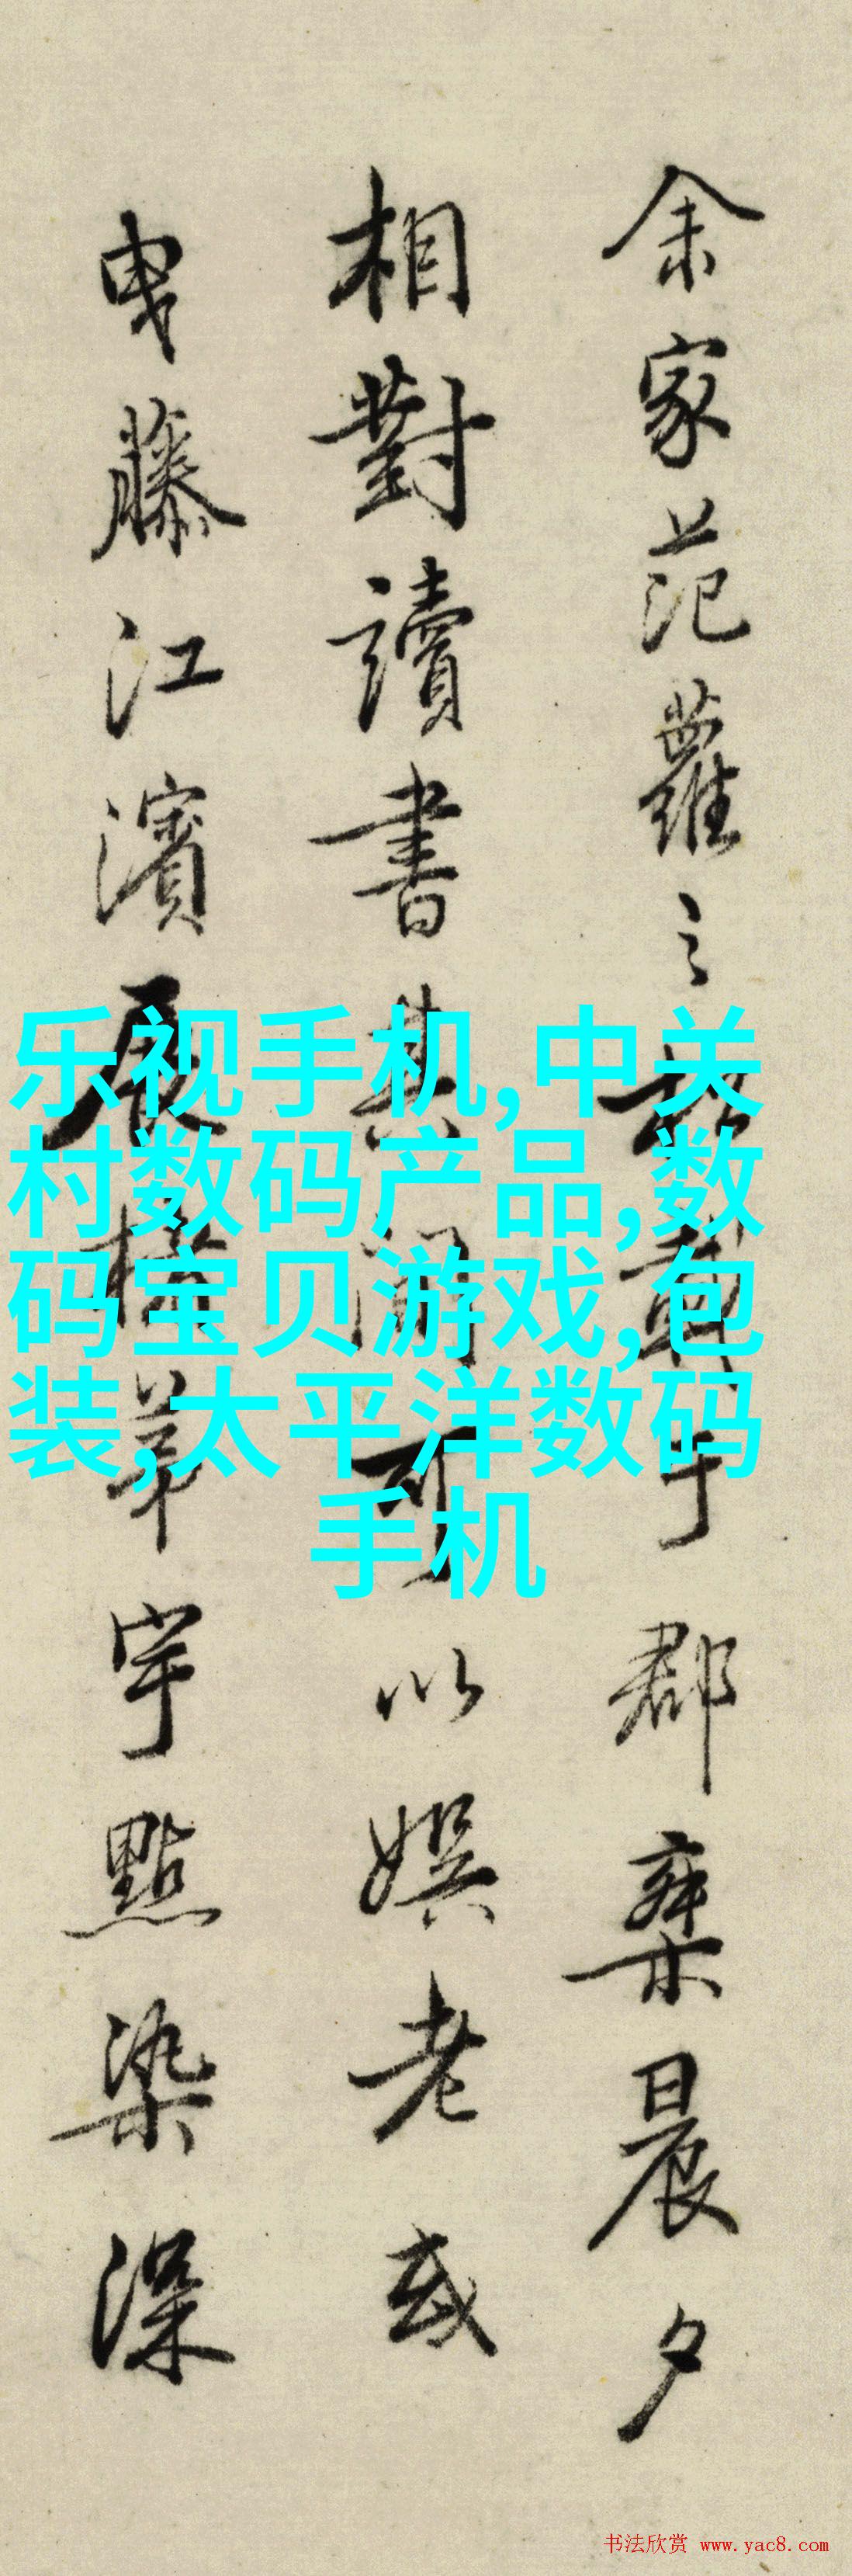 余家范蘿之
于郡
晨夕
相對讀書其間可以娛老或
曳藤江濱展
茅宇點染深
乐视手机,中关
村数码产品,数
码宝贝游戏,包
装,太平洋数码
手机
书法欣赏 www.yac8.com